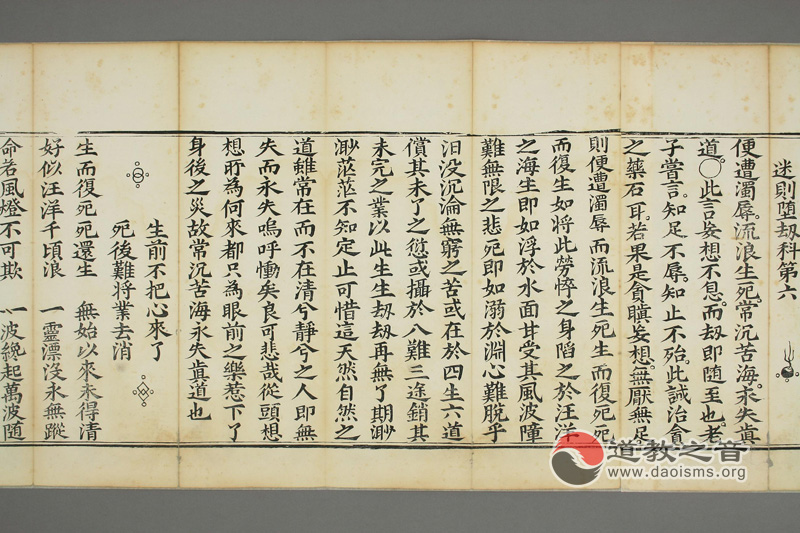 迷則堕刼科第六
便遭濁辱。流浪生死。常沉苦海。永失真
道。○此言妄想不息。而刼即随至也。老
子嘗言。知足不辱。知止不殆。此誡治貪
之藥石耳。若果是貪瞋妄想。無厭無足。
則便遭濁辱而流浪生死生而復死死
而復生如將此勞悴之身陷之於汪洋
之海生即如浮於水面甘受其風波障
難無限之悲死即如溺於淵心難脱乎
汨没沉淪無窮之苦或在於四生六道
償其未了之愆或攝於八難三途銷其
未完之業以此生生刼刼再無了期渺
渺茫茫不知定止可惜這天然自然之
道雖常在而不在清兮静兮之人即無
失而永失嗚呼慟矣良可悲哉從頭想
想所為何來都只為眼前之樂惹下了
身後之災故常沉苦海永失真道也
生前不把心來了
死後難將業去消
生而復死死還生　無始以來未得清
好似汪洋千頃浪　一靈漂沒永無蹤
命若風燈不可欺　一波纔起萬波随
道教之音
www.daoisms.org